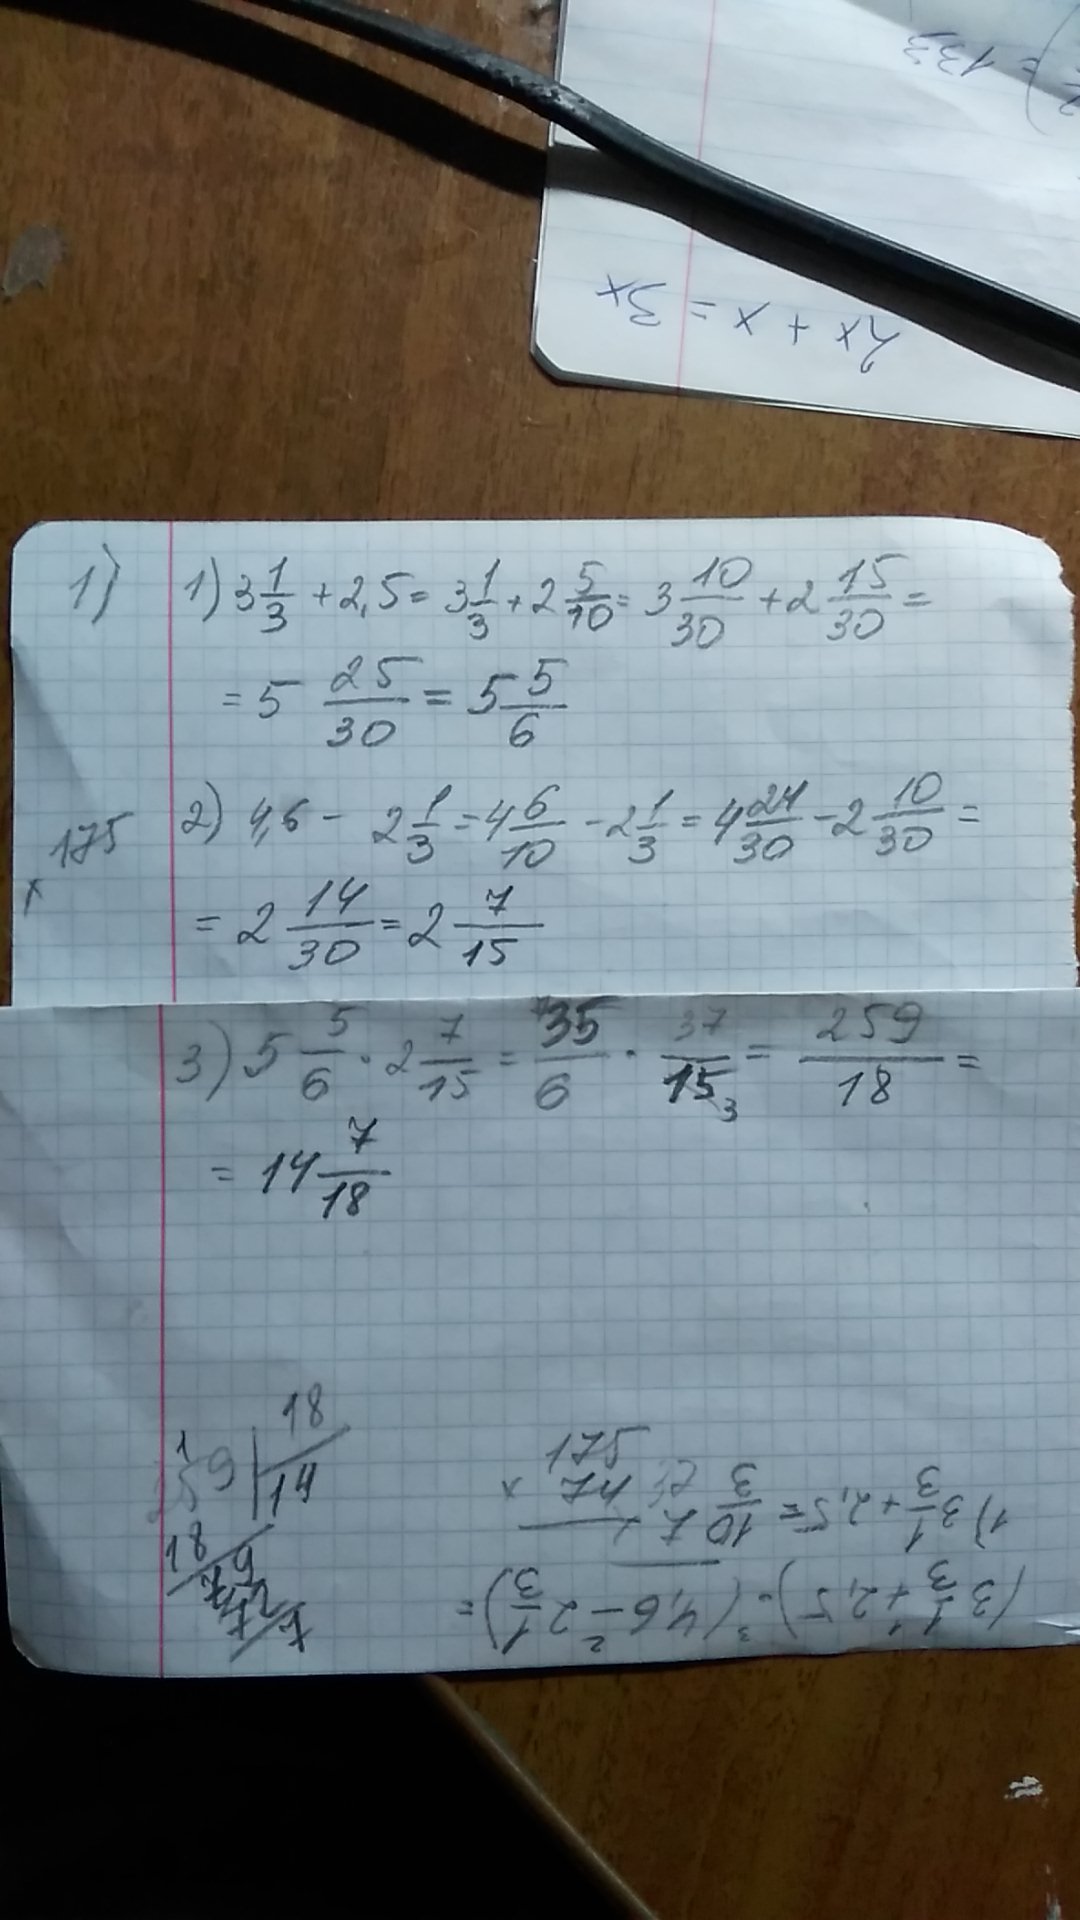 ) = 133
2x + x = 3x
1) 1) 3 1/3 + 2,5 = 3 1/3 + 2 5/10 = 3 10/30 + 2 15/30 =
= 5 25/30 = 5 5/6
175
x
2) 4,6 - 2 1/3 = 4 6/10 - 2 1/3 = 4 24/30 - 2 10/30 =
= 2 14/30 = 2 7/15
3) 5 5/6 · 2 7/15 = 35/6 · 37/15 3 = 259/18 =
= 14 7/18
259 | 18
18 | 14
175
x 74
(3 1/3 + 2,5) · (4,6 - 2 1/3) =
1) 3 1/3 + 2,5 = 10/3 +